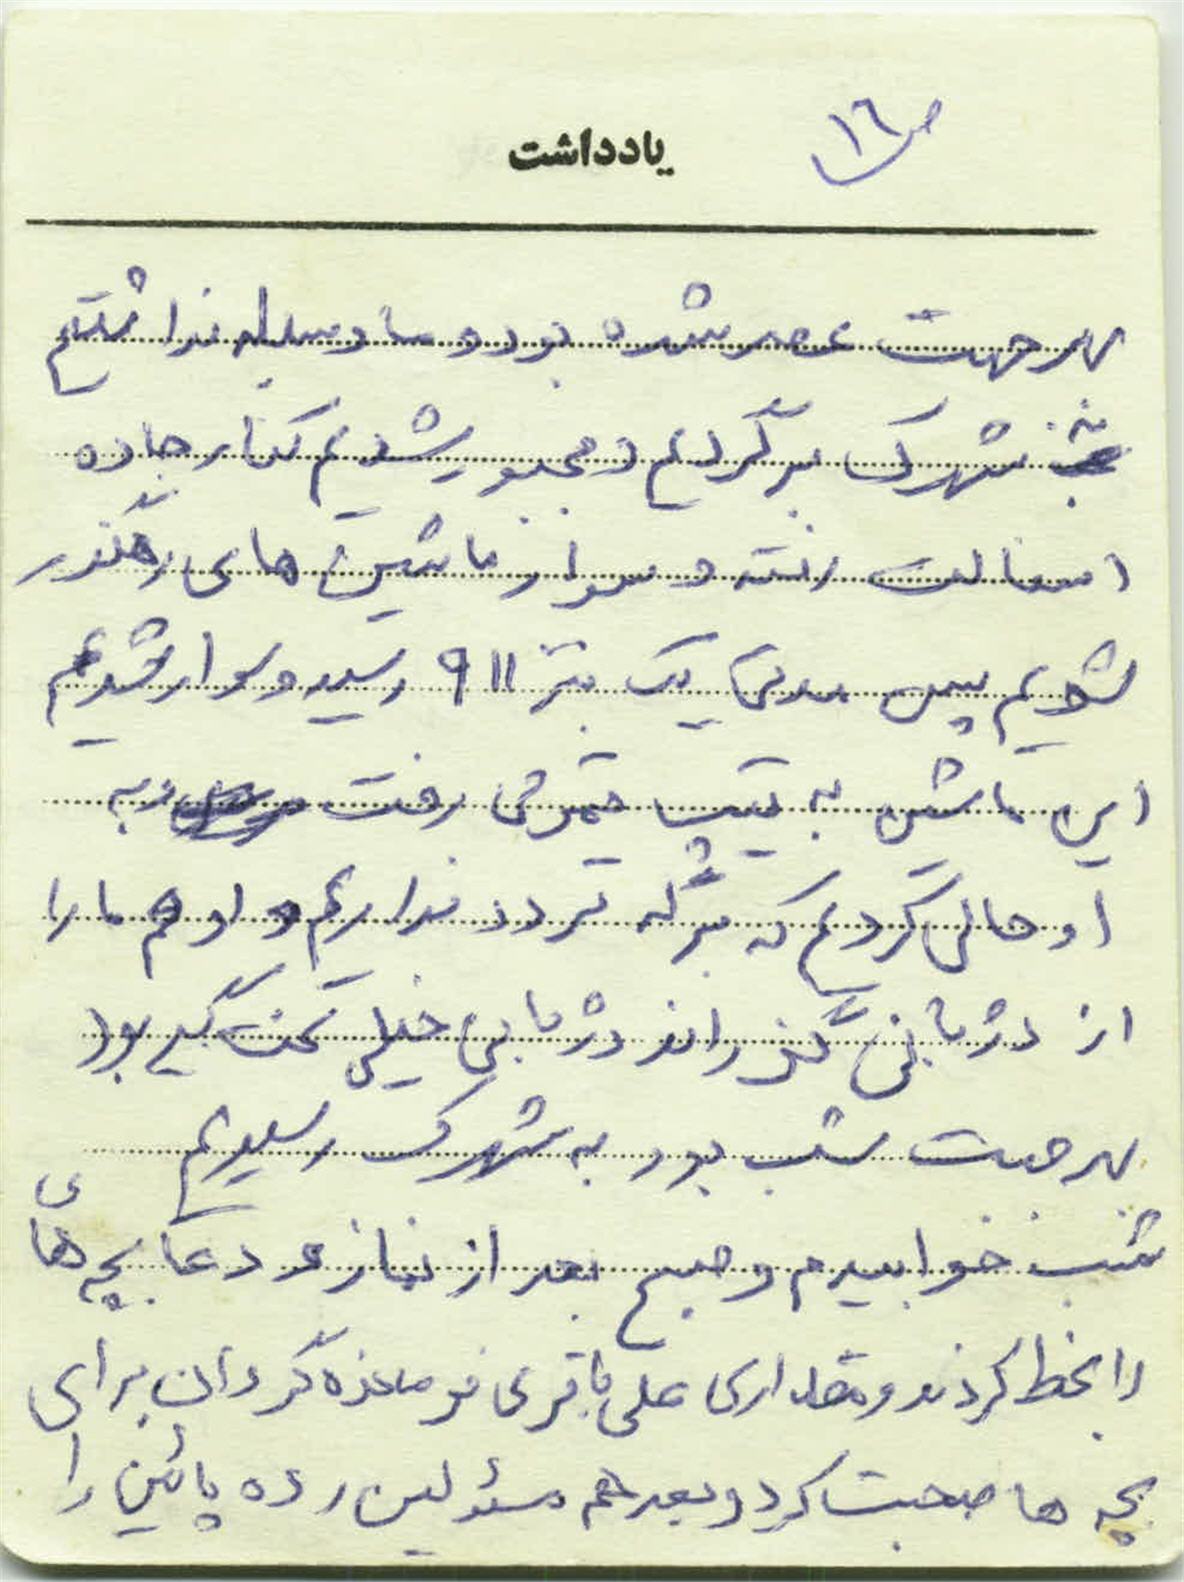 ص ١٦
یادداشت
بهر جهت عصر شده بود و ما وسیله نداشتیم
به شهرک برگردیم و مجبور شدیم کنار جاده
اسفالت رفته و سوار ماشین های رهگذر
شویم پس مدتی یک بنز ٩١١ رسید و سوار شدیم
این ماشین به تیپ میرفت و به
او حالی کردیم که برگه تردد نداریم و او هم ما را
از دژبانی گذراند دژبانی خیلی سخت گیر بود
بهر جهت شب بود به شهرک رسیدیم
شب خوابیدم و صبح بعد از نماز و دعا بچه های
را بخط کردند و مقداری علی باقری فرمانده گردان برای
بچه ها صحبت کرد و بعد هم مسئولین رده پائین را